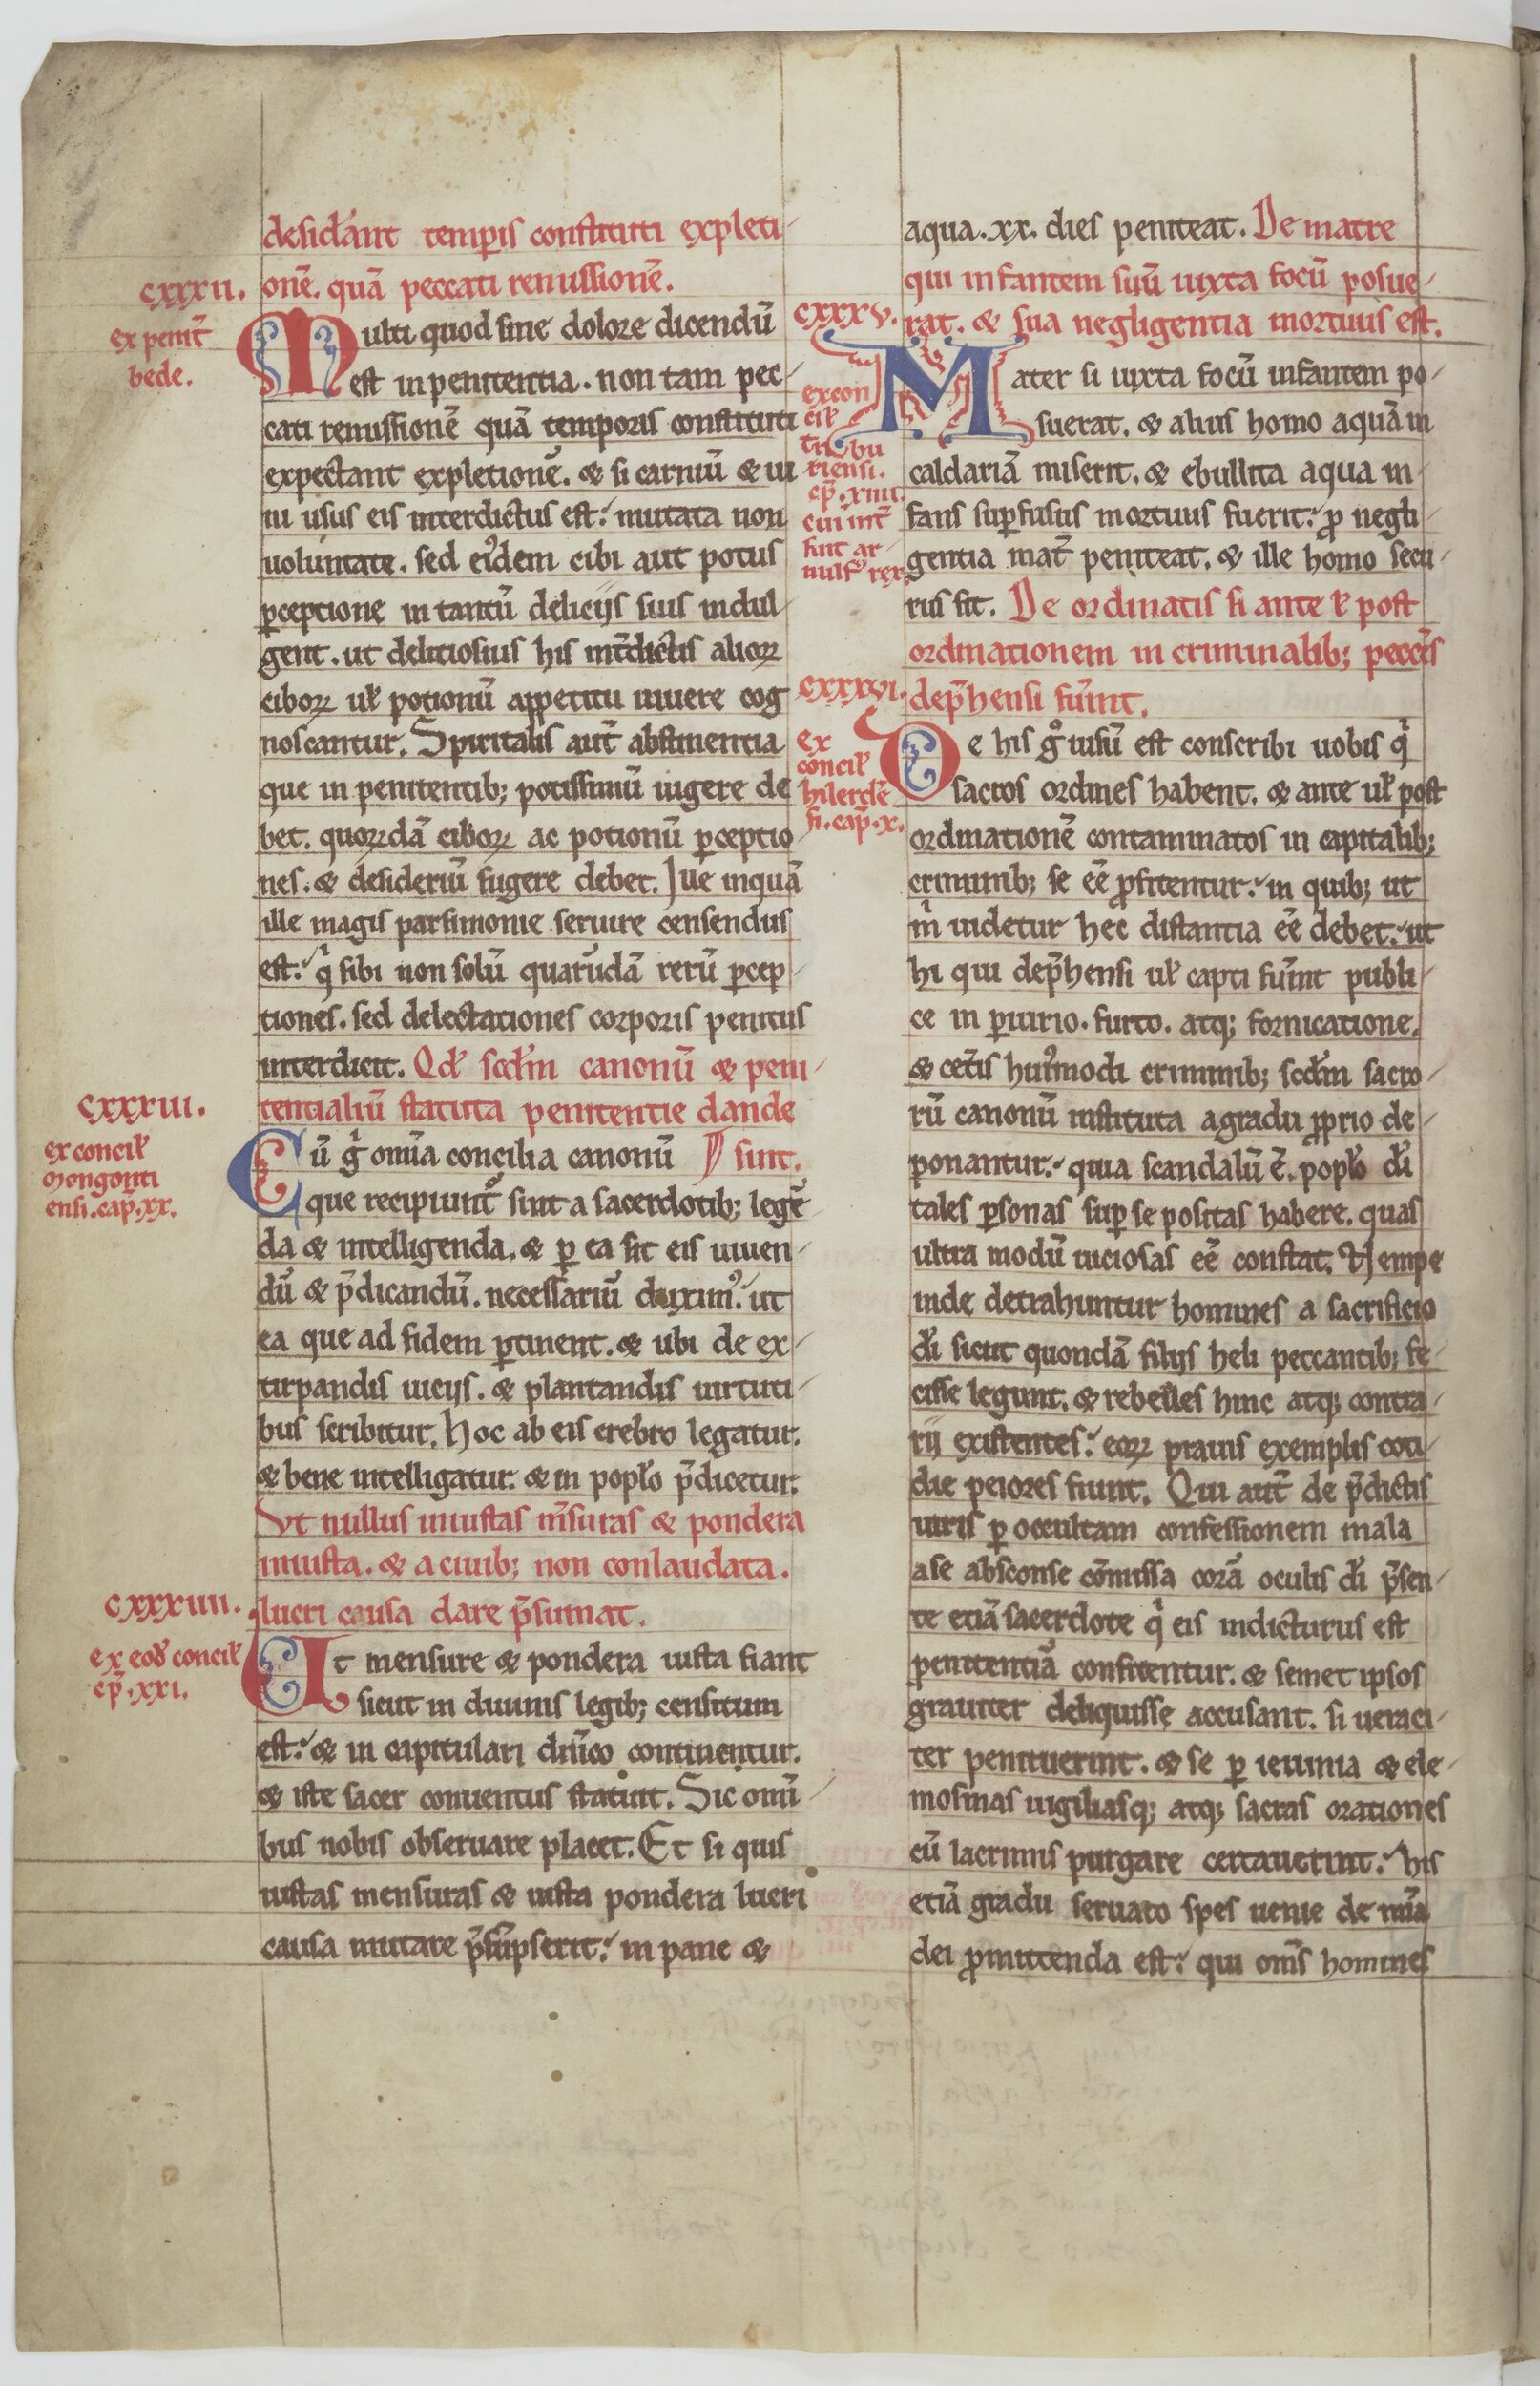 desid'ant temp̲is constituti expleti-
onē. quā peccati remissionē.
CXXXII.
ex penit̄
bede.
Multi quod sine dolore dicendū
est in penitentia. non tam pec-
cati remissionē quā temporis constituti
expectant expletionē. & si carniū & ui
ni usus eis interdictus est: mutata non
uoluntate. sed eꝰdem cibi aut potus
ꝑceptione in tantū delicijs suis indul-
gent. ut delitiosius his int̄dictis alioꝝ
ciboꝝ ul̓ potionū appetitu uiuere cog
noscantur. Spiritalis aut̄ abstinentia
que in penitentib; potissimū uigere de
bet. quoꝝdā ciboꝝ ac potionū ꝑceptio
nes. & desideriū fugere debet. Jue inquā
ille magis parsimonie seruire censendus
est: q̇ sibi non solū quarūdā rerū ꝑcep-
tiones. sed delectationes corporis penitus
interdicit. Qd̓ scd̓m canonū & peni-
CXXXIII.
tentialiū statuta penitentie dande
sint.
ex concil̓
mogonti
ensi. cap̄. xx.
Cū g̊ om̄ia concilia canonū
que recipiunt̄ sint a sacerdotib; legē
da & intelligenda. & ꝑ ea sit eis uiuen-
dū & p̄dicandū. necessariū duximꝰ: ut
ea que ad fidem ꝑtinent. & ubi de ex-
tirpandis uicijs. & plantandis uirtuti-
bus scribitur. hoc ab eis crebro legatur.
& bene intelligatur. & in popl̓o p̄dicetur.
Vt nullus iniustas m̄suras & pondera
iniusta. & a ciuib; non conlaudata.
CXXXIIII.
lucri causa dare p̄sumat.
ex eod̓ concil̓
cp̄. XXI.
Ut mensure & pondera iusta fiant
sicut in diuinis legib; censitum
est: & in capitulari dn̄ico continentur.
& iste sacer conuentus statuit. Sic omī-
bus nobis obseruare placet. Et si quis
iustas mensuras & iusta pondera lucri
causa mutare p̄sūpserit: in pane &
aqua. xx. dies peniteat. De matre
qui infantem suū iuxta focū posue-
CXXXV.
rat. & sua negligentia mortuus est.
ex con
cil̓
tribu
riensi.
cp̄. xiiii.
cui int̄
fuit ar-
nulfꝰ rex
Mater si iuxta focū infantem po-
suerat. & alius homo aquā in
caldariā miserit. & ebullita aqua in-
fans suꝑfusus mortuus fuerit: ꝓ negli-
gentia mat̄ peniteat. & ille homo secu-
rus sit. De ordinatis si ante ul̓ post
ordinationem in criminalib; pecc̄is
CXXXVI.
dep̄hensi fūint.
ex
concil̓
hilerdē
si. cap̄. x.
De his g̊ uisū est conscribi uobis q̇
sacros ordines habent. & ante ul̓ post
ordinationē contaminatos in capitalib;
criminib; se eē̄ ꝓfitentur: in quib; ut
m̓ uidetur hec distantia eē̄ debet: ut
hi qui dep̄hensi ul̓ capti fūint publi-
ce in ꝑiurio. furto. atq; fornicatione.
& cet̄is huiꝰmodi criminib; scd̓m sacro-
rū canonū instituta a gradu ꝓprio de-
ponantur: quia scandalū ē. popl̓o d̓i
tales ꝑsonas suꝑ se positas habere. quas
ultra modū uiciosas eē̄ constat. Nempe
inde detrahuntur homines a sacrificio
d̓i sicut quondā filijs heli peccantib; fe-
cisse legunt̄. & rebelles hinc atq; contra-
rij existentes: eoꝝ prauis exemplis coti-
die peiores fiunt. Qui aut̄ de p̄dictis
uiris ꝑ occultam confessionem mala
a se absconse cōmissa corā oculis d̓i p̄sen-
te etiā sacerdote q̇ eis indicturus est
penitentiā confitentur. & semet ipsos
grauiter deliquisse accusant. si ueraci-
ter penituerint. & se ꝑ ieiunia & ele-
mosinas uigiliasq; atq; sacras orationes
cū lacrimis purgare certauerint: his
etiā gradu seruato spes uenie de mīa
dei ꝓmittenda est: qui om̄s homines